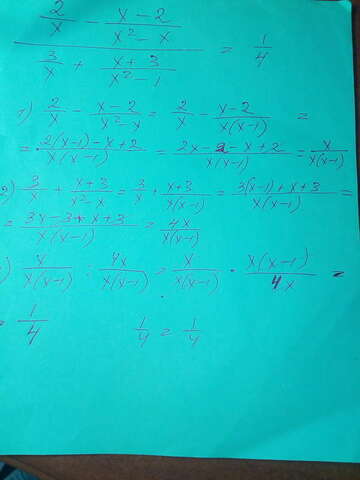 2/x - (x-2)/(x²-x)
――――――――― = 1/4
3/x + (x+3)/(x²-1)
1) 2/x - (x-2)/(x²-x) = 2/x - (x-2)/(x(x-1)) =
= (2(x-1)-x+2)/(x(x-1)) = (2x-2-x+2)/(x(x-1)) = x/(x(x-1))
2) 3/x + (x+3)/(x²-x) = 3/x + (x+3)/(x(x-1)) = (3(x-1)+x+3)/(x(x-1)) =
= (3x-3+x+3)/(x(x-1)) = 4x/(x(x-1))
) x/(x(x-1)) : 4x/(x(x-1)) = x/(x(x-1)) · x(x-1)/(4x) =
= 1/4      1/4 = 1/4